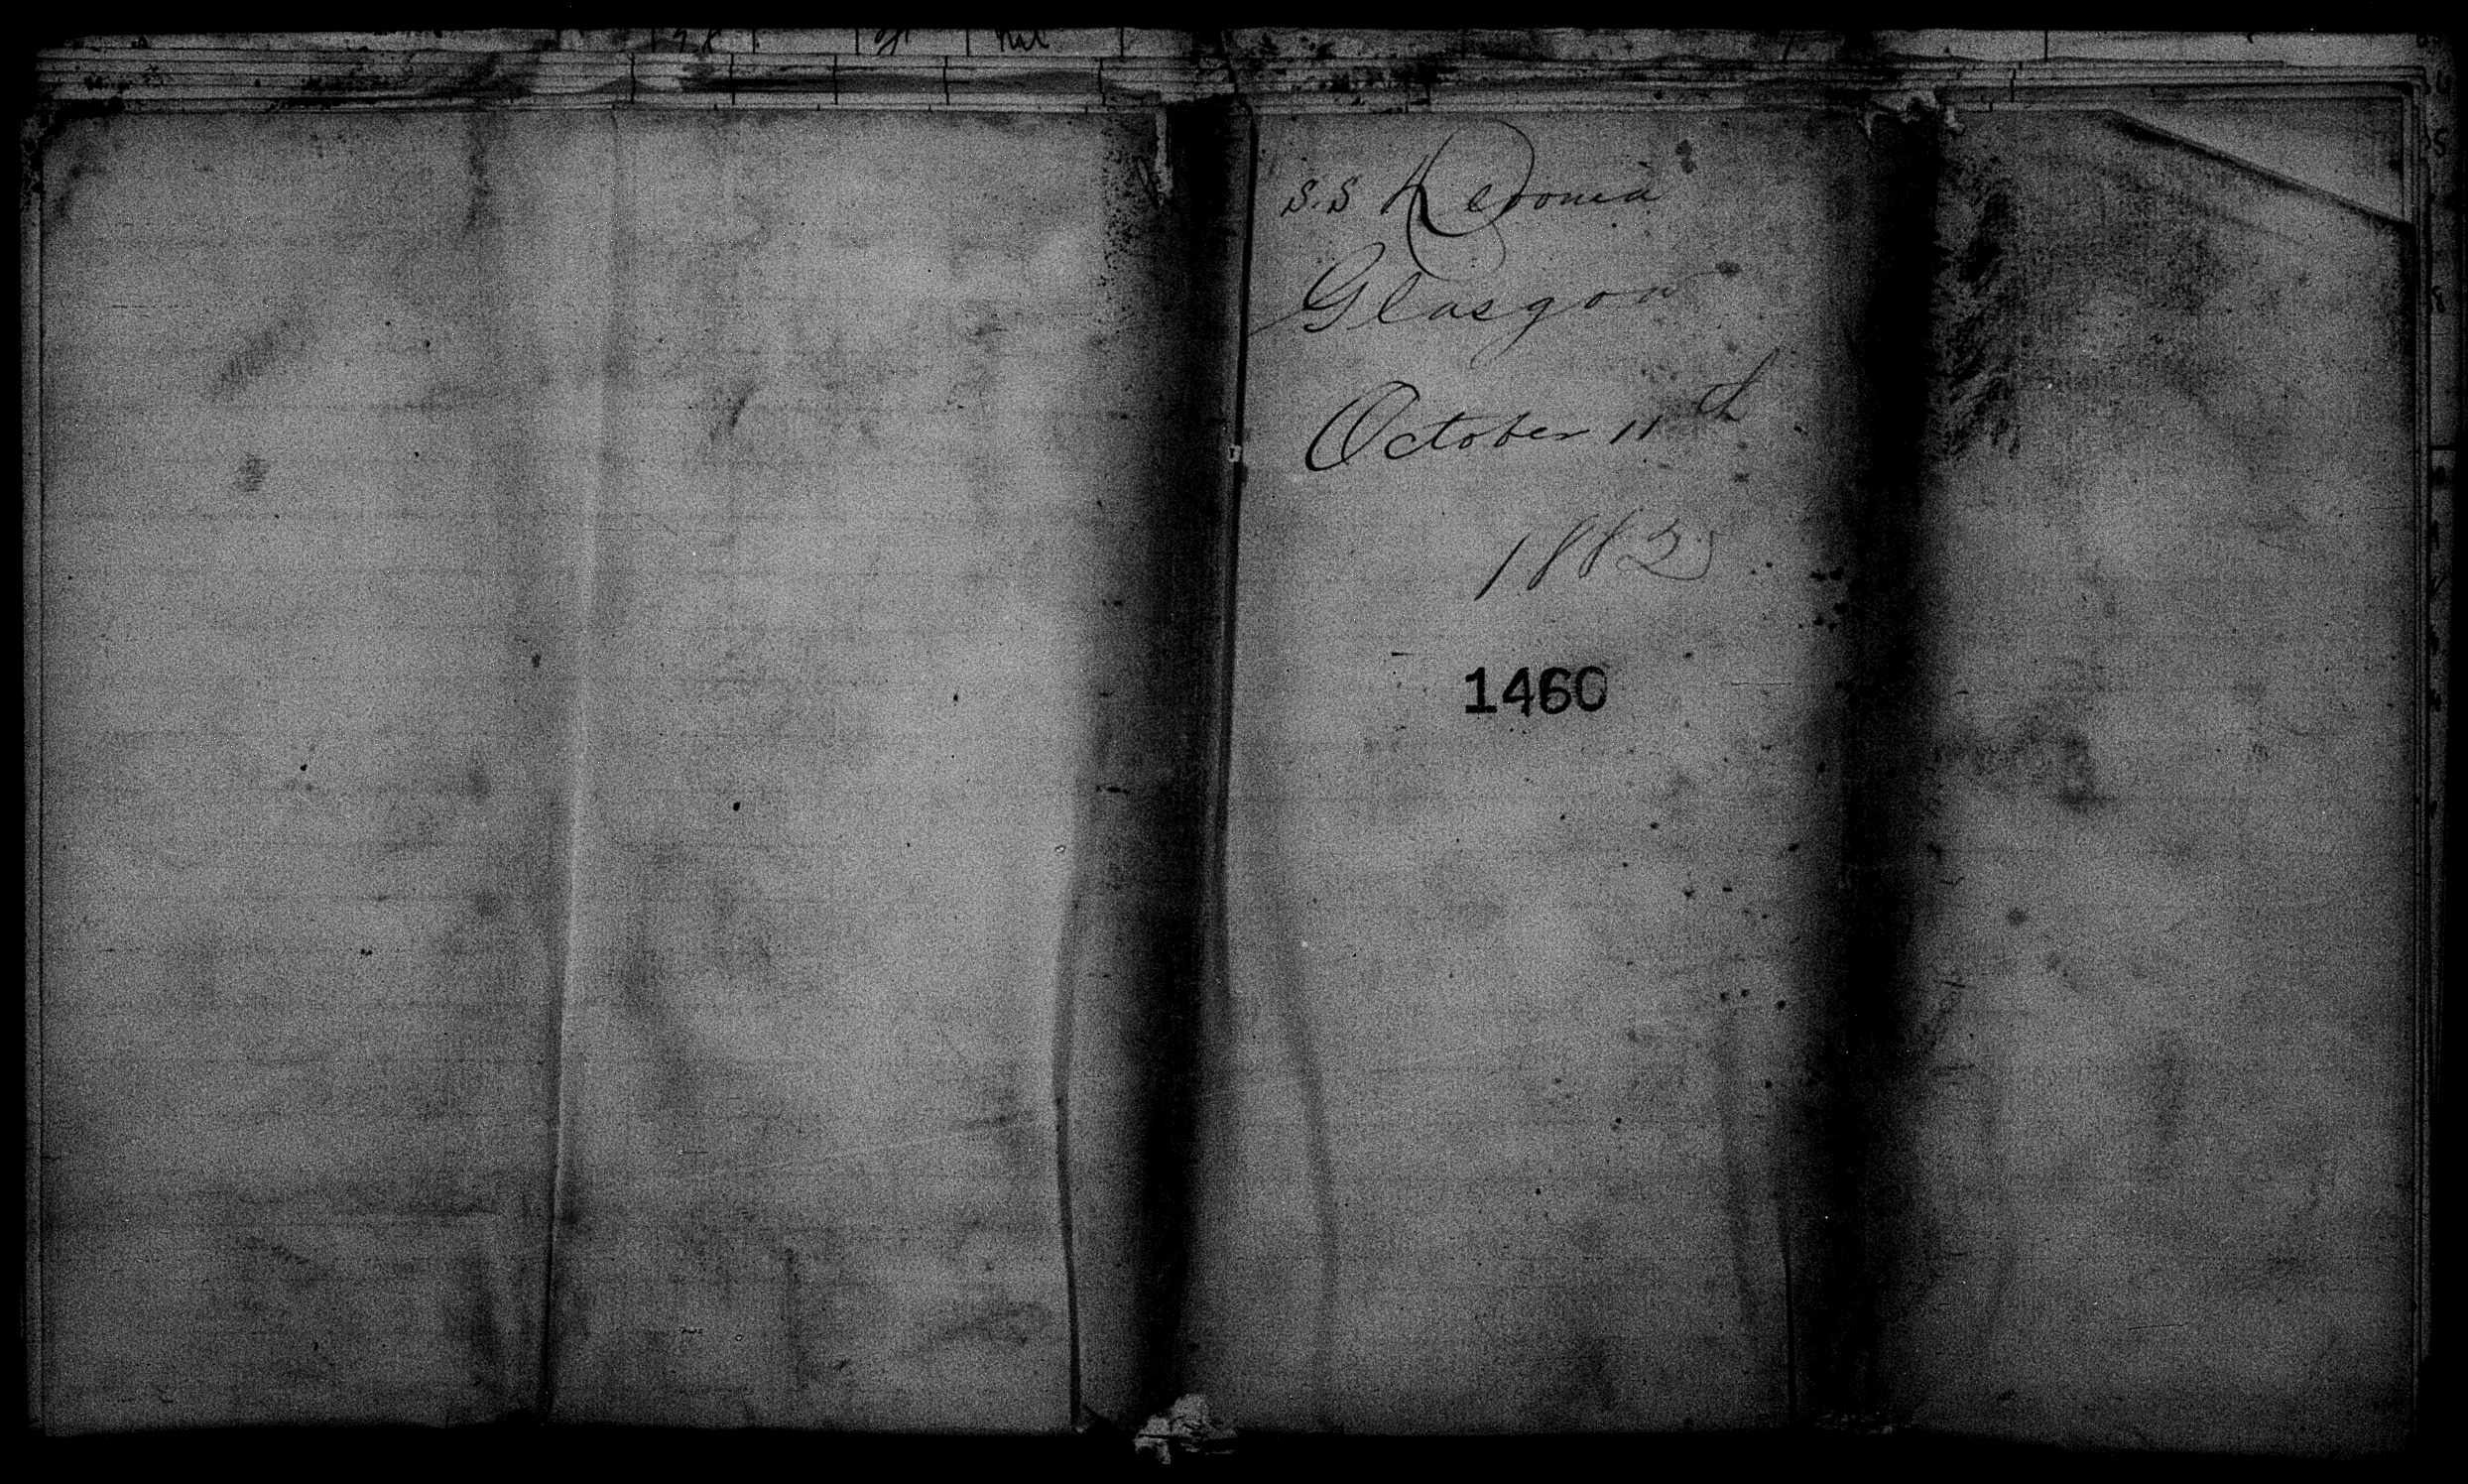 S.S Devonia
Glasgow
October 11th
1882
1460